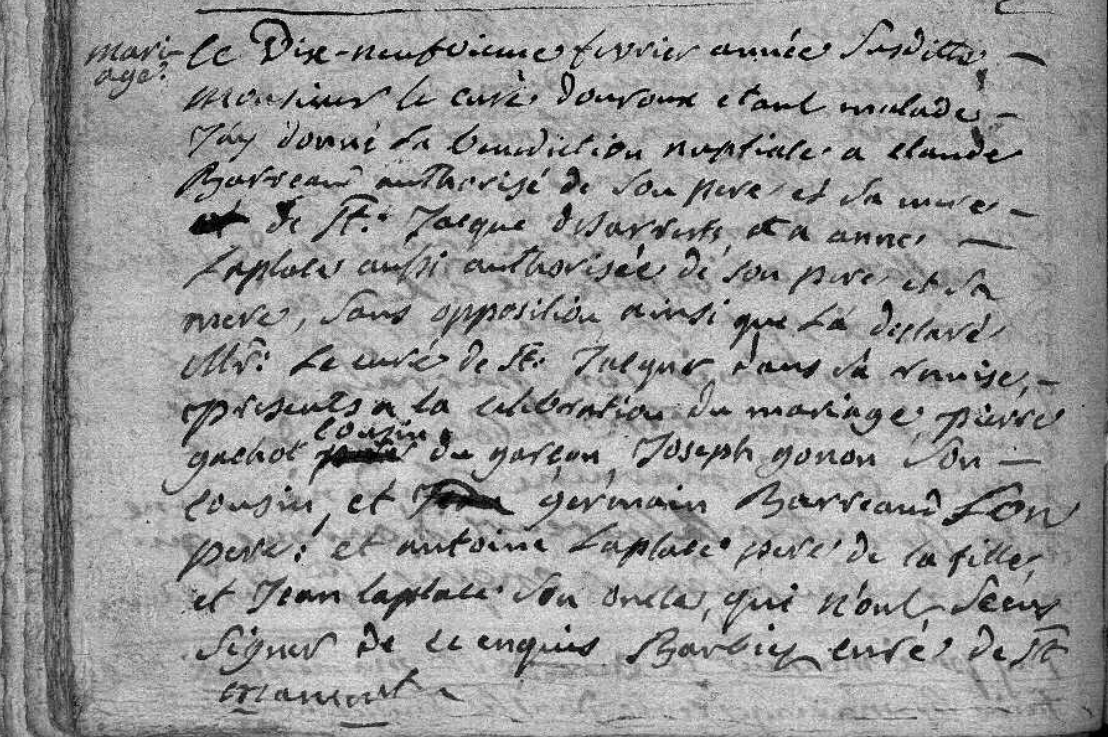 mari-
age:
le Dix-neufvieme fevrier année Susditte
monsieur le curé douroux etant malade
J'ay donné la benediction nuptiale a claude
Barreaud authorisé de son pere et sa mere
de St: Jacque desarrests, et a anne
Laplace aussi authorisée de son pere et sa
mere, sans opposition ainsi que La declaré
Mr: Le curé de St: Jacque dans sa remise,
presents a la celebration du mariage pierre
gachot cousin du garçon, Joseph gonon son
cousin, et germain Barreaud Son
pere; et antoine Laplace pere de la fille,
et Jean laplace son oncle, qui n'ont sceus
signer de ce enquis Barbiey curé de St
mamert